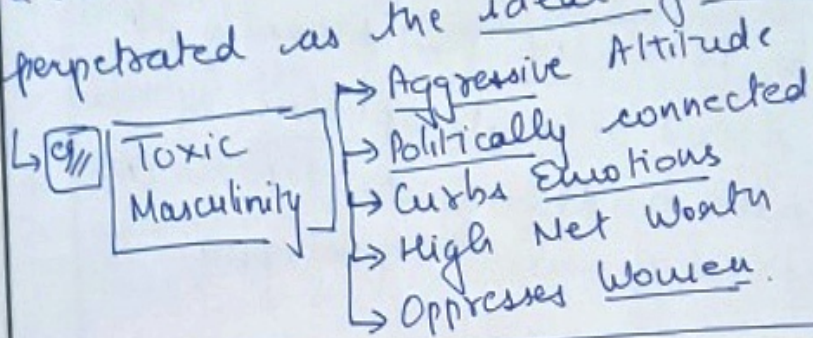 perpetrated as the
↳ eg// Toxic Masculinity
→ Aggressive Altitude
→ Politically connected
→ Curbs Emotions
→ High Net Worth
→ Oppresses Women.